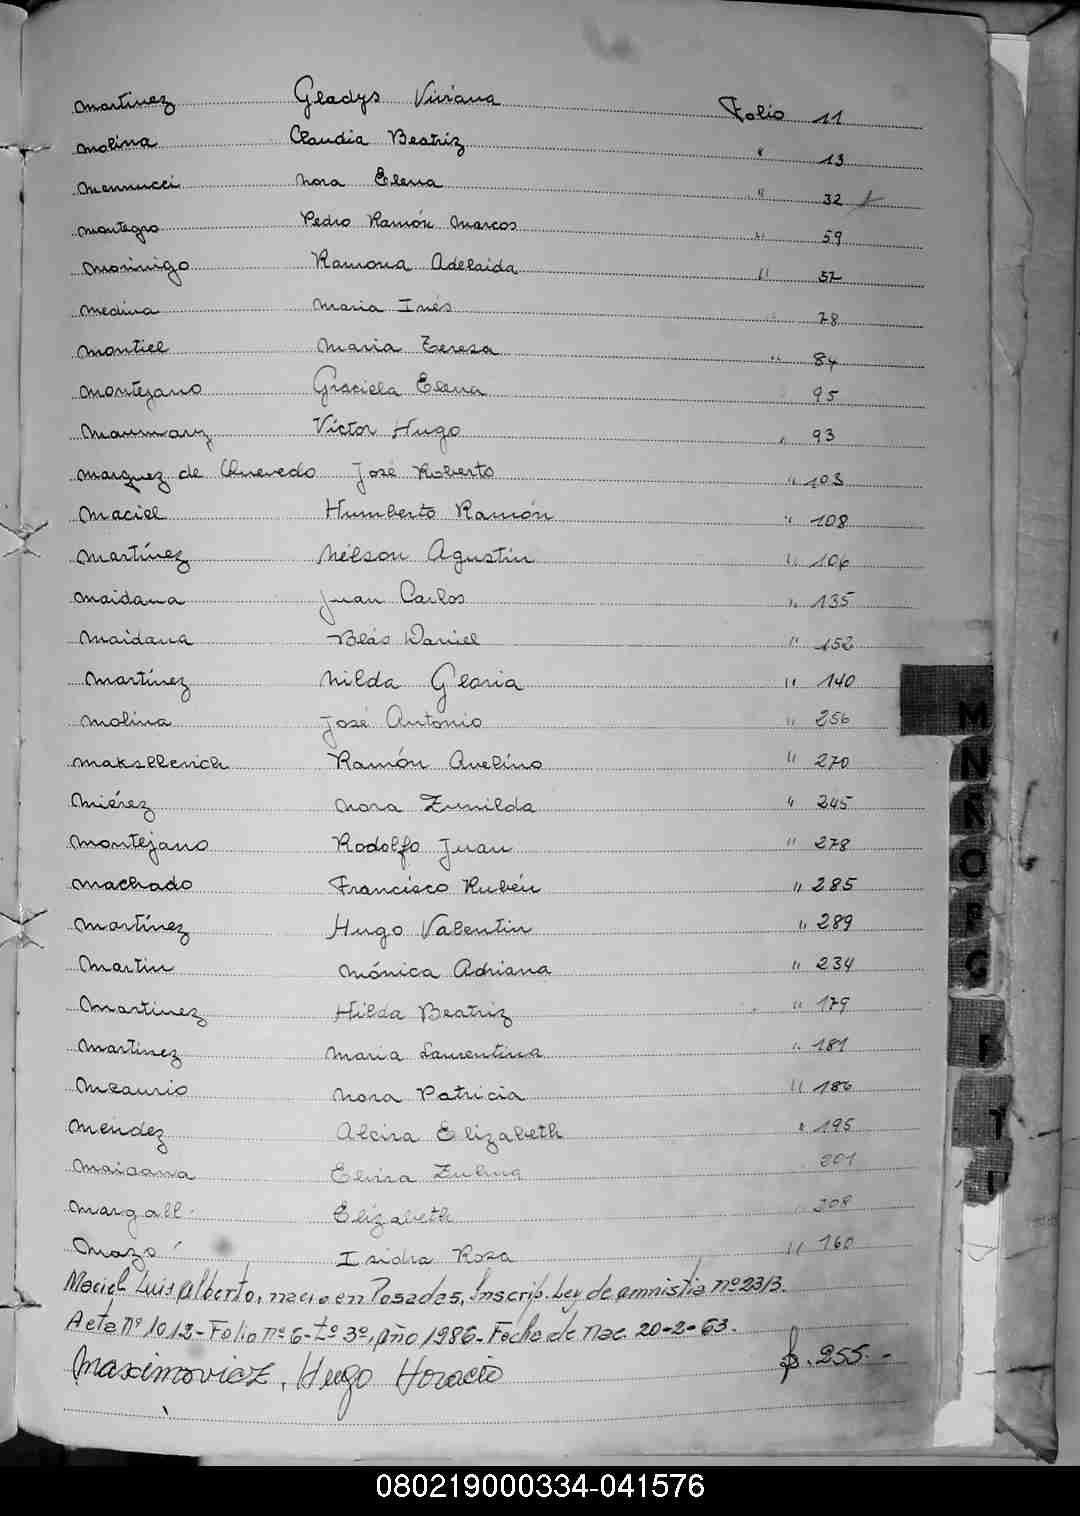 Martinez Gladys Viviana Folio 11
Molina Claudia Beatriz " 13
Mennucci Nora Elena " 32
Montegro Pedro Ramón Marcos " 59
Morinigo Ramona Adelaida " 57
Medina Maria Inés " 78
Montiel Maria Tereza " 84
Montejano Graciela Elena 95
Víctor Hugo " 93
Marquez de Quevedo José Roberto " 103
Maciel Humberto Ramón " 108
Martínez Nélson Agustín " 106
Maidana Juan Carlos " 135
Maidana Blás Daniel " 152
Martínez Nilda Gloria " 140
Molina José Antonio " 256
Maksllevich Ramón Avelino " 270
Miérez Nora Zunilda " 245
Montejano Rodolfo Juan " 278
Machado Francisco Rubén " 285
Martínez Hugo Valentin " 289
Martin Mónica Adriana " 234
Martinez Hilda Beatriz " 179
Martinez Maria Laurentina " 181
Meaurio Nora Patricia " 186
Mendez Alcira Elizabeth " 195
Maidana Elvira Zulma 201
Margall Elizabeth " 208
Mazó Isidra Rosa " 160
Maciel Luis Alberto, nacio en Posadas, Inscrip. Ley de amnistia nº 23/3.
Acta Nº 1012 - Folio nº 6 - tº 3º, año 1986 - Fecha de Nac. 20-2-63.
Maximovicz, Hugo Horacio f. 255.-
M
N
Ñ
O
P
Q
R
T
U
080219000334-041576